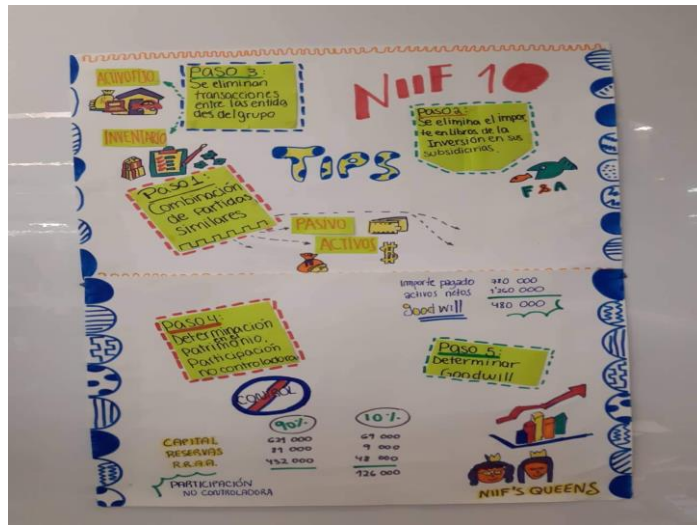 NIIF 10
TIPS
PASO 3:
Se eliminan
transacciones
entre las entida
des del grupo
ACTIVO FIJO
INVENTARIO
PASO 2:
Se elimina el impor
te en libros de la
Inversión en sus
subsidiarias.
F&A
Paso 1:
Combinación
de partidas
similares
PASIVO
ACTIVOS
importe pagado 780 000
activos netos 1'260 000
good will 480 000
Paso 4:
Determinación
en el
Patrimonio.
Participación
no controladora
Paso 5:
Determinar
Goodwill
CONTROL
90% 10%
CAPITAL 621 000 69 000
RESERVAS 81 000 9 000
R.R.A.A. 432 000 48 000
126 000
PARTICIPACIÓN
NO CONTROLADORA
NIIF'S QUEENS